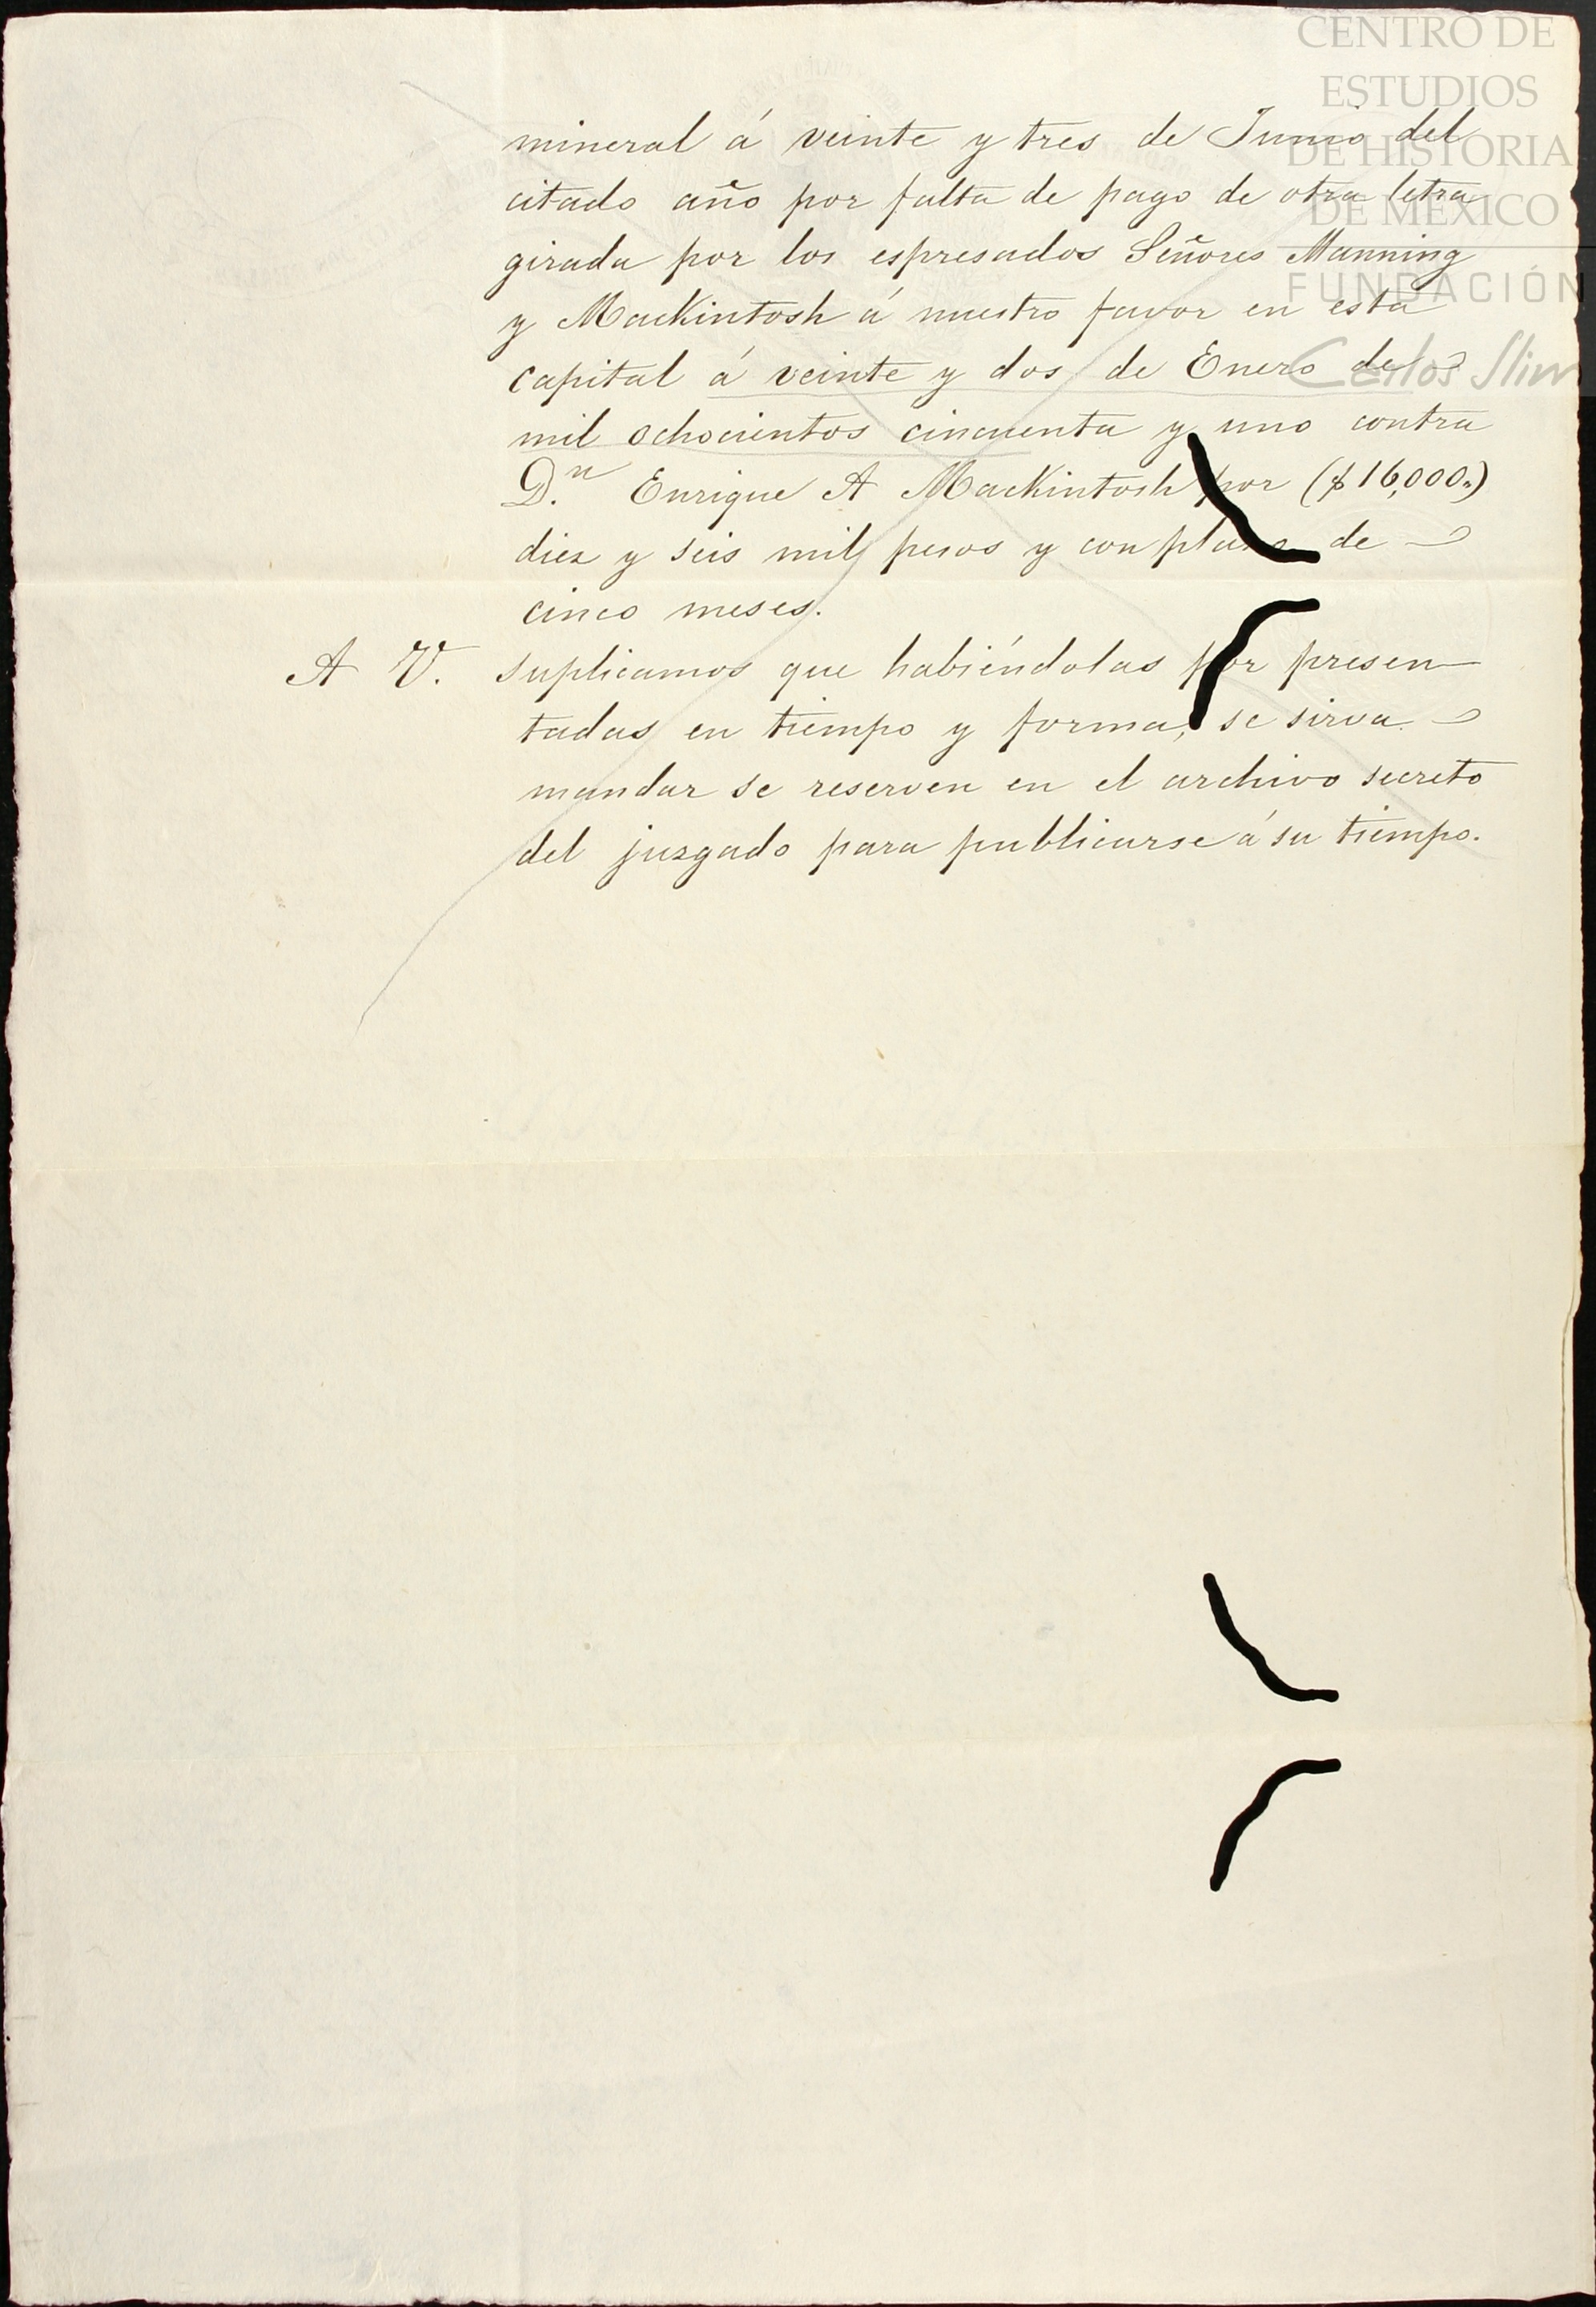 CENTRO DE
ESTUDIOS
DE HISTORIA
DE MEXICO
FUNDACIÓN
Carlos Slim
mineral á veinte y tres de Junio del
citado año por falta de pago de otra letra
girada por los espresados Señores Manning
y MacKintosh á nuestro favor en esta
capital á veinte y dos de Enero de
mil ochocientos cincuenta y uno contra
D.n Enrique A MacKintosh por ($16,000.)
diez y seis mil pesos y con plazo de
cinco meses.
A V. suplicamos que habiéndolas por presen
tadas en tiempo y forma, se sirva
mandar se reserven en el archivo secreto
del juzgado para publicarse á su tiempo.